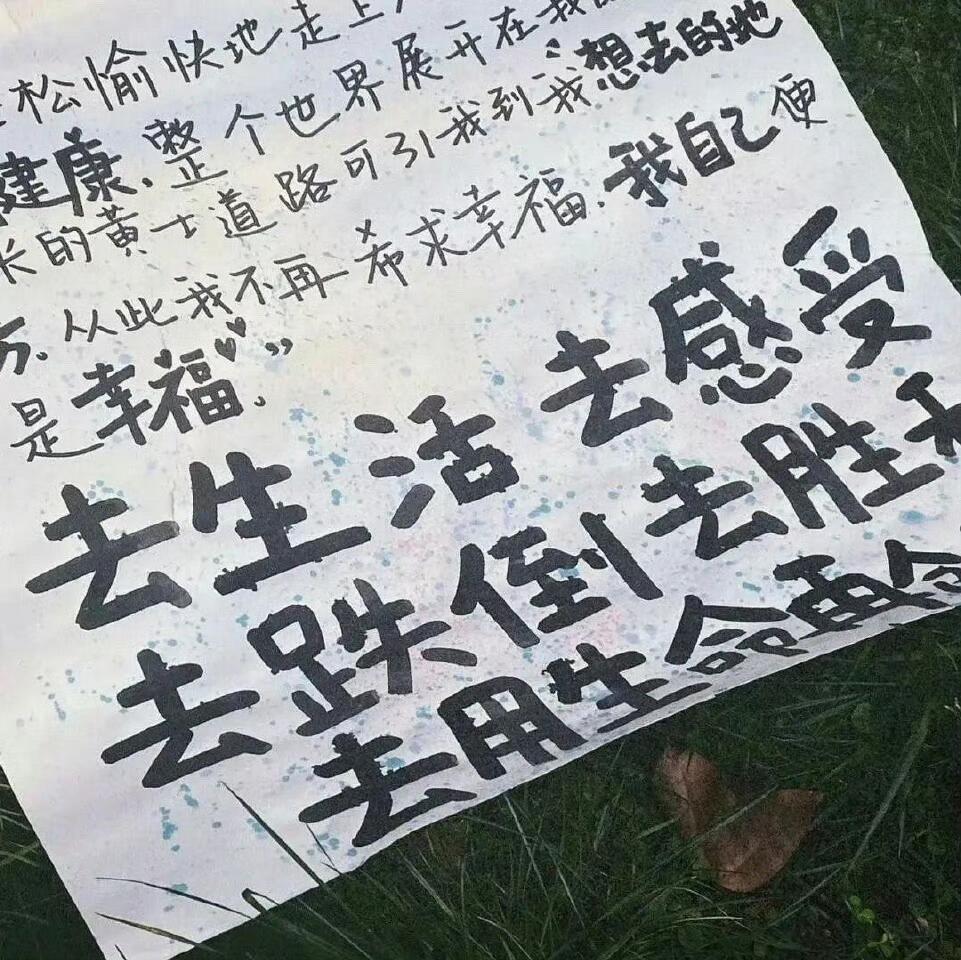 松愉快地走上
健康.整个世界展开在我
长的黄士道路可引我到我想去的地
方.从此我不再希求幸福.我自己便
是幸福.”
去生活 去感受
去跌倒 去胜
去用生命再